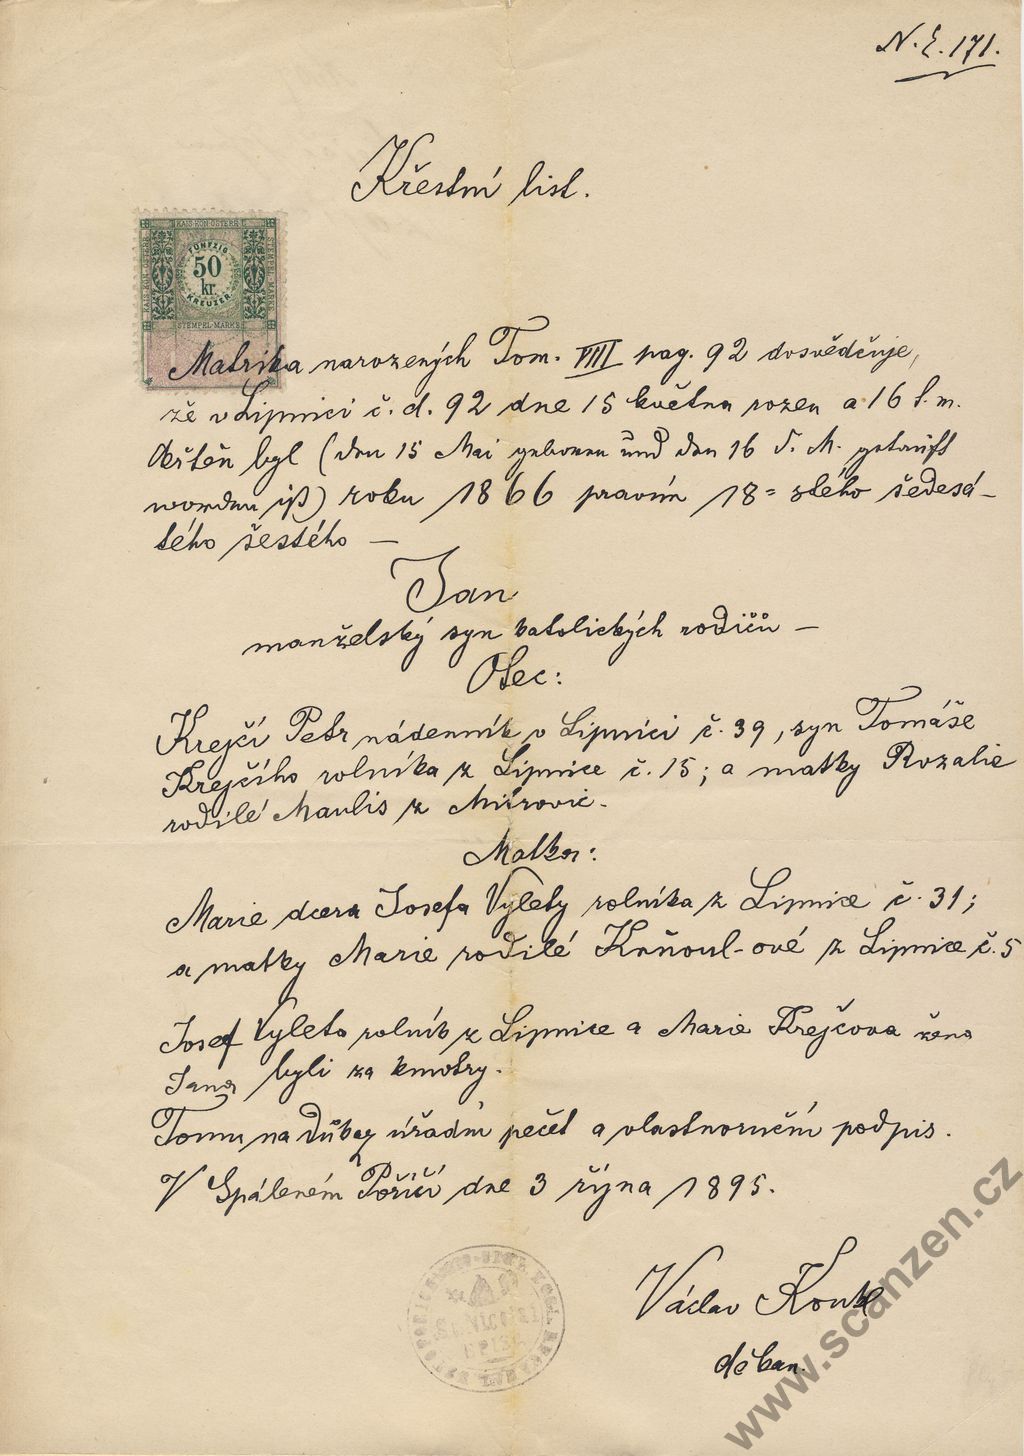 N. E. 171.
Křestní list.
KAIS. KÖN. ÖSTERR.
FÜNFZIG
50
kr.
KREUZER
STEMPEL-MARKE
Matrika narozených Tom. VIII pag. 92 dosvědčuje,
že v Lipnici č. d. 92 dne 15 května rozen a 16 t. m.
křtěn byl (den 15 Mai geboren und den 16 d. M. getauft
worden ist) roku 1866 pravím 18=stého šedesá-
tého šestého —
Jan
manželský syn katolických rodičů —
Otec:
Krejčí Petr nádenník v Lipnici č. 39, syn Tomáše
Krejčího rolníka z Lipnice č. 15; a matky Rozalie
rodilé Maulis z Mítrovic.
Matka:
Marie dcera Josefa Vylety rolníka z Lipnice č. 31;
a matky Marie rodilé Kaňoul-ové z Lipnice č. 5
Josef Vyleta rolník z Lipnice a Marie Krejčova žena
Jana byli za kmotry.
Tomu na důkaz úřadní pečeť a vlastnoruční podpis.
V Spáleném Poříčí dne 3 října 1895.
Václav
děkan.
www.scanzen.cz